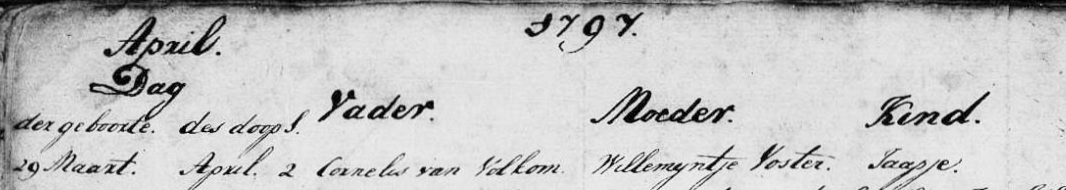 1797.
April.
Dag
der geboorte. des doops. Vader. Moeder. Kind.
29 Maart. April. 2 Cornelis van Volkom. Willemyntje Voster. Jaapje.